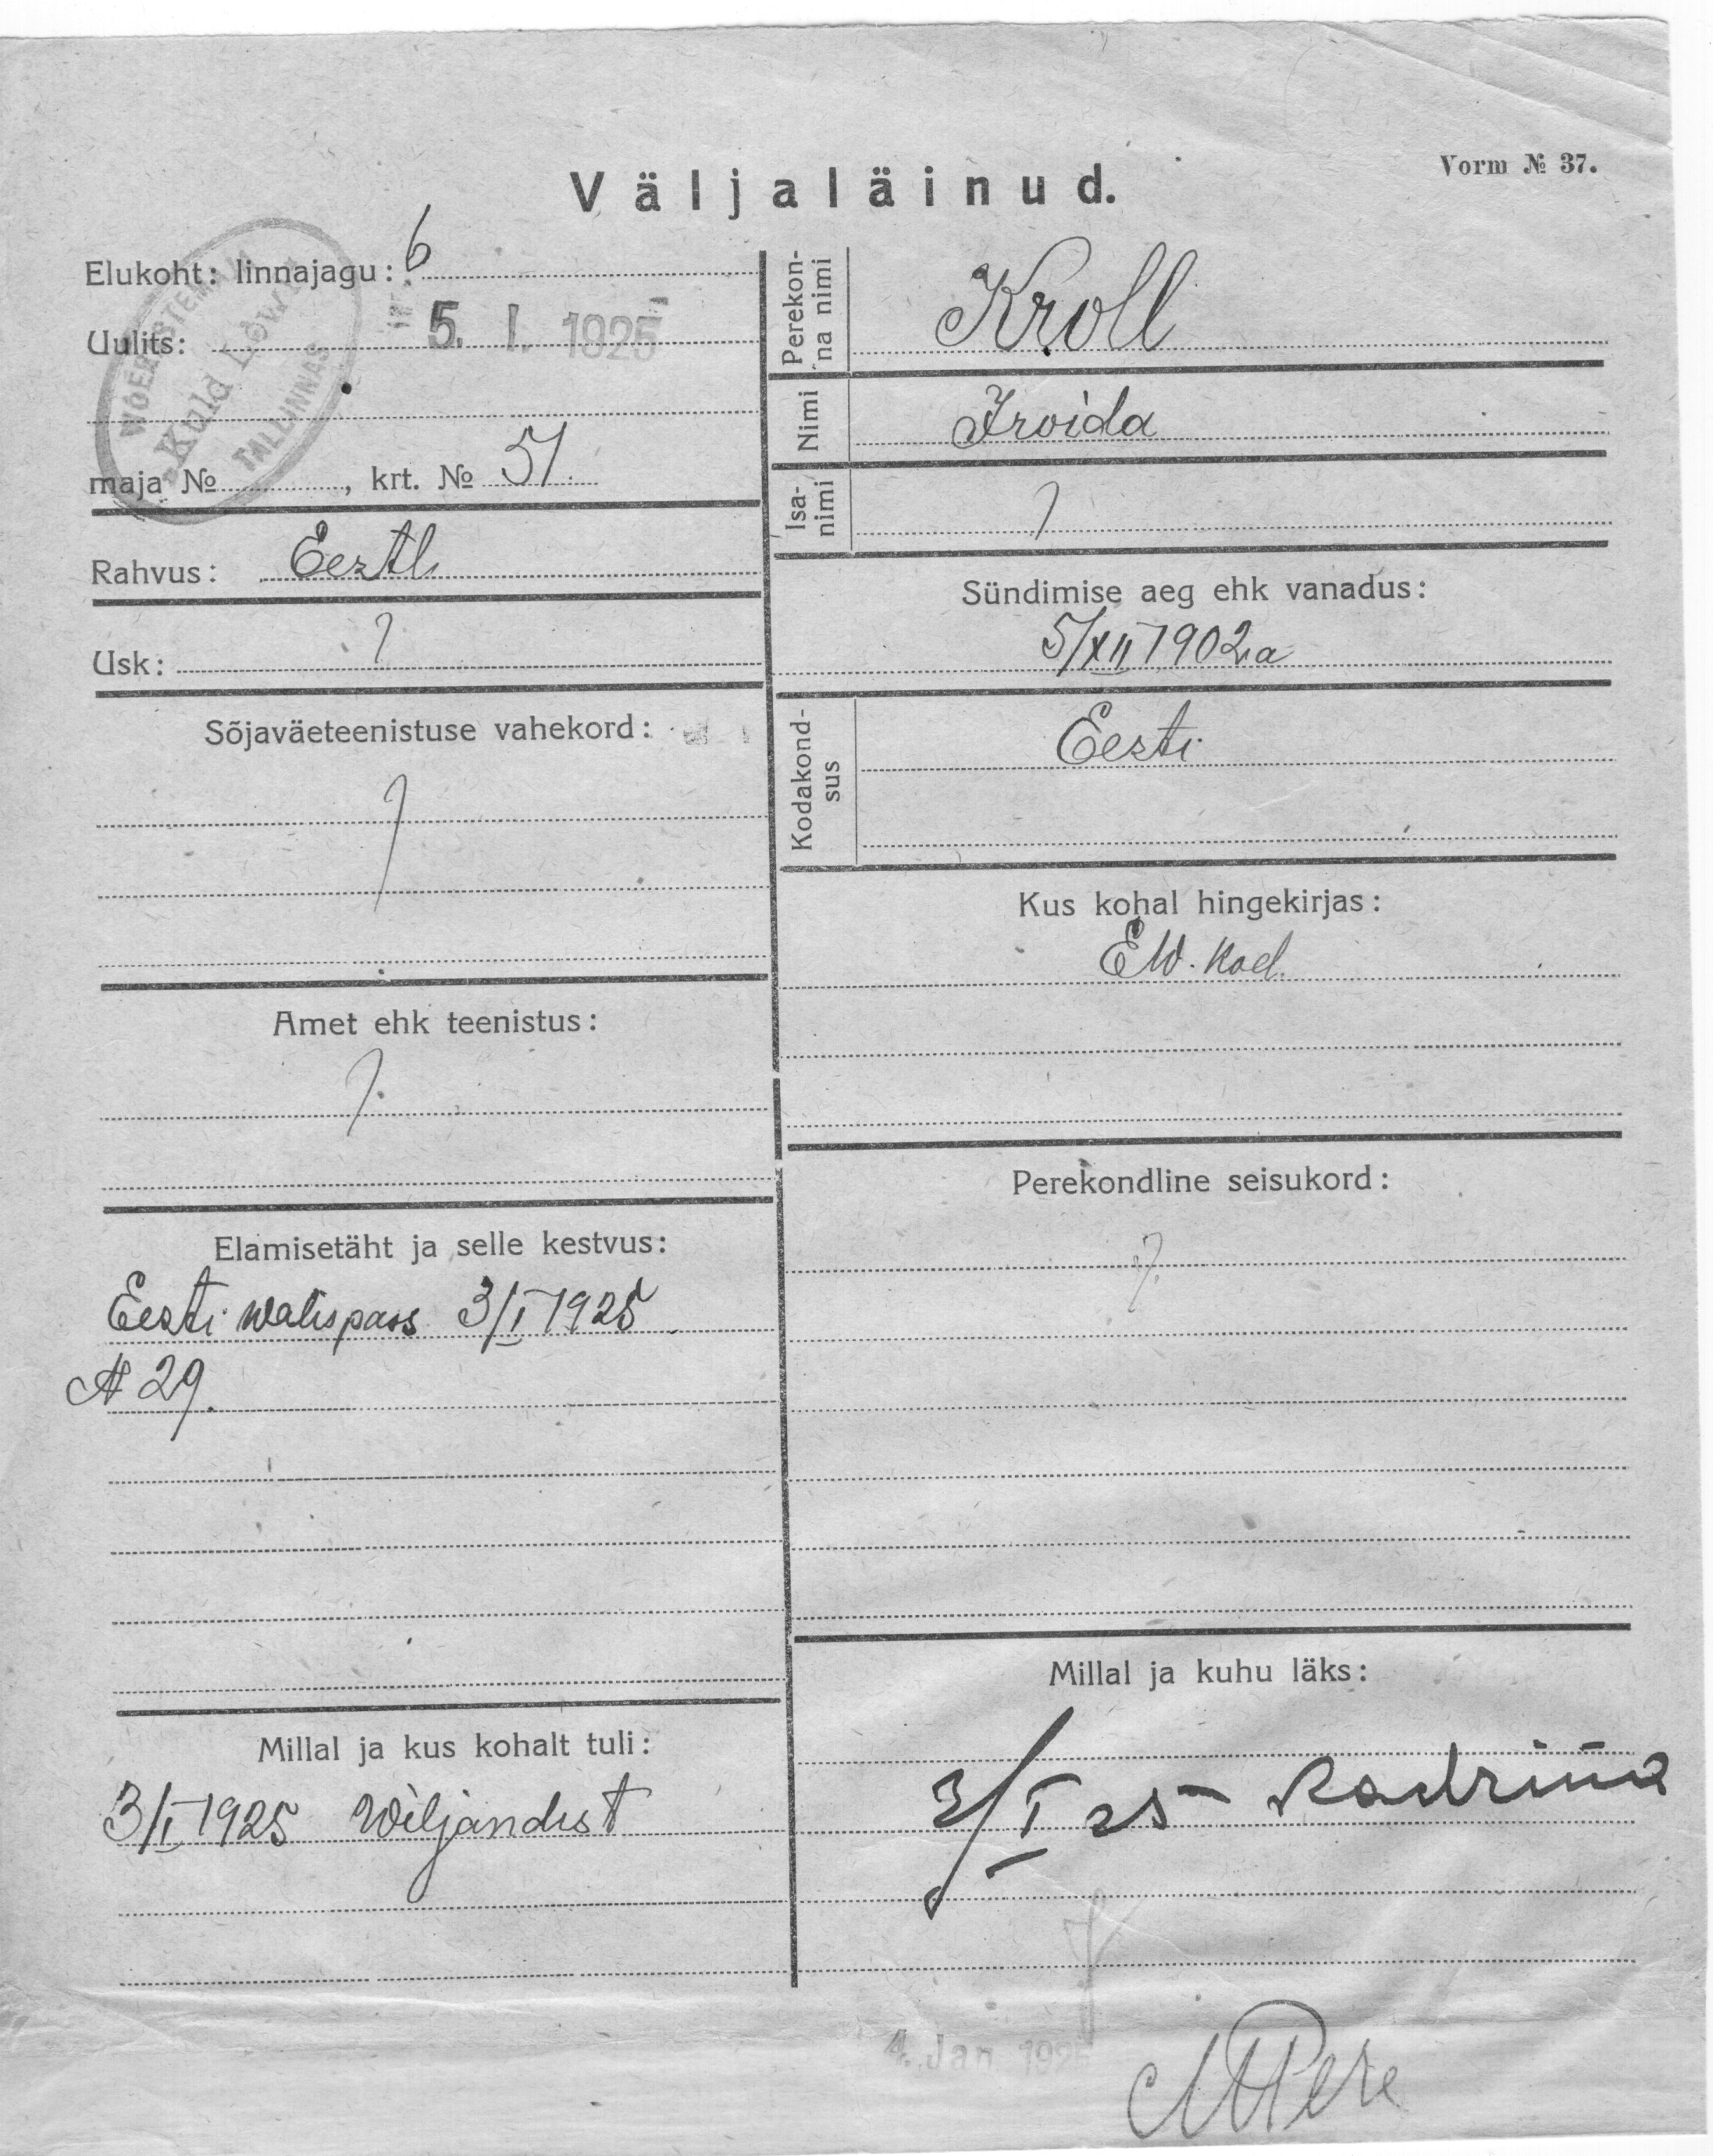 Vorm № 37.
Väljaläinud.
Elukoht: linnajagu: 6
5. I. 1925
Uulits:
WÕÕRASTEMAJA
„Kuld Lõwi"
TALLINNAS
maja № , krt. № 51.
Rahvus: Eestl.
Usk: ?
Sõjaväeteenistuse vahekord:
?
Amet ehk teenistus:
?
Elamisetäht ja selle kestvus:
Eesti walispass 3/I 1925
№ 29.
Millal ja kus kohalt tuli:
3/I 1925 Wiljandist
Perekon-
na nimi
Kroll
Nimi
Froida
Isa-
nimi
?
Sündimise aeg ehk vanadus:
5/XII 1902a
Kodakond-
sus
Eesti
Kus kohal hingekirjas:
EW. kod.
Perekondline seisukord:
?
Millal ja kuhu läks:
3/I 25 Kadrina
4. Jan 1925